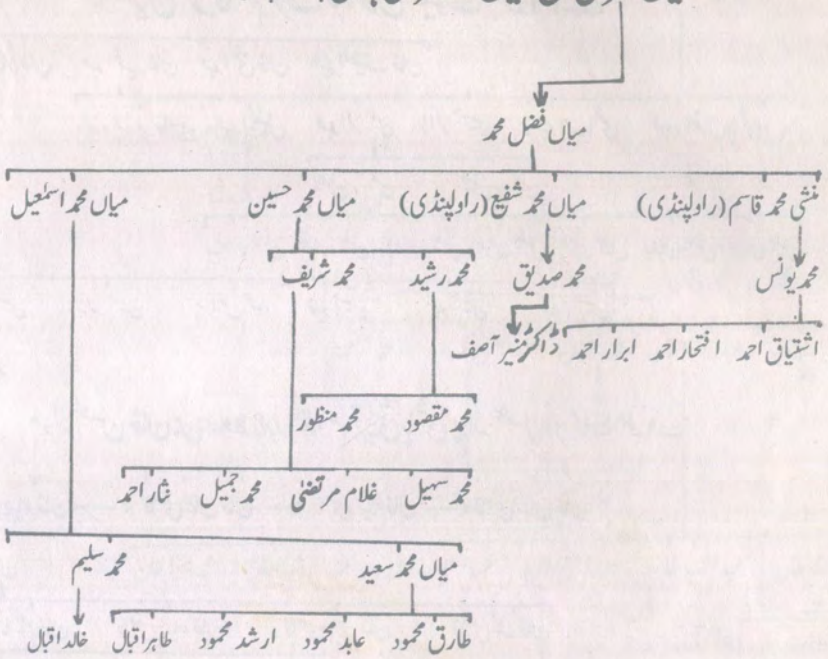 میاں فضل محمد
منشی محمد قاسم (راولپنڈی) میاں محمد شفیع (راولپنڈی) میاں محمد حسین میاں محمد اسمٰعیل
محمد یونس محمد صدیق محمد رشید محمد شریف
اشتیاق احمد افتخار احمد ابرار احمد ڈاکٹر منیر آصف
محمد مقصود محمد منظور
محمد سہیل غلام مرتضیٰ محمد جمیل نثار احمد
میاں محمد سعید محمد سلیم
طارق محمود عابد محمود ارشد محمود طاہر اقبال خالد اقبال